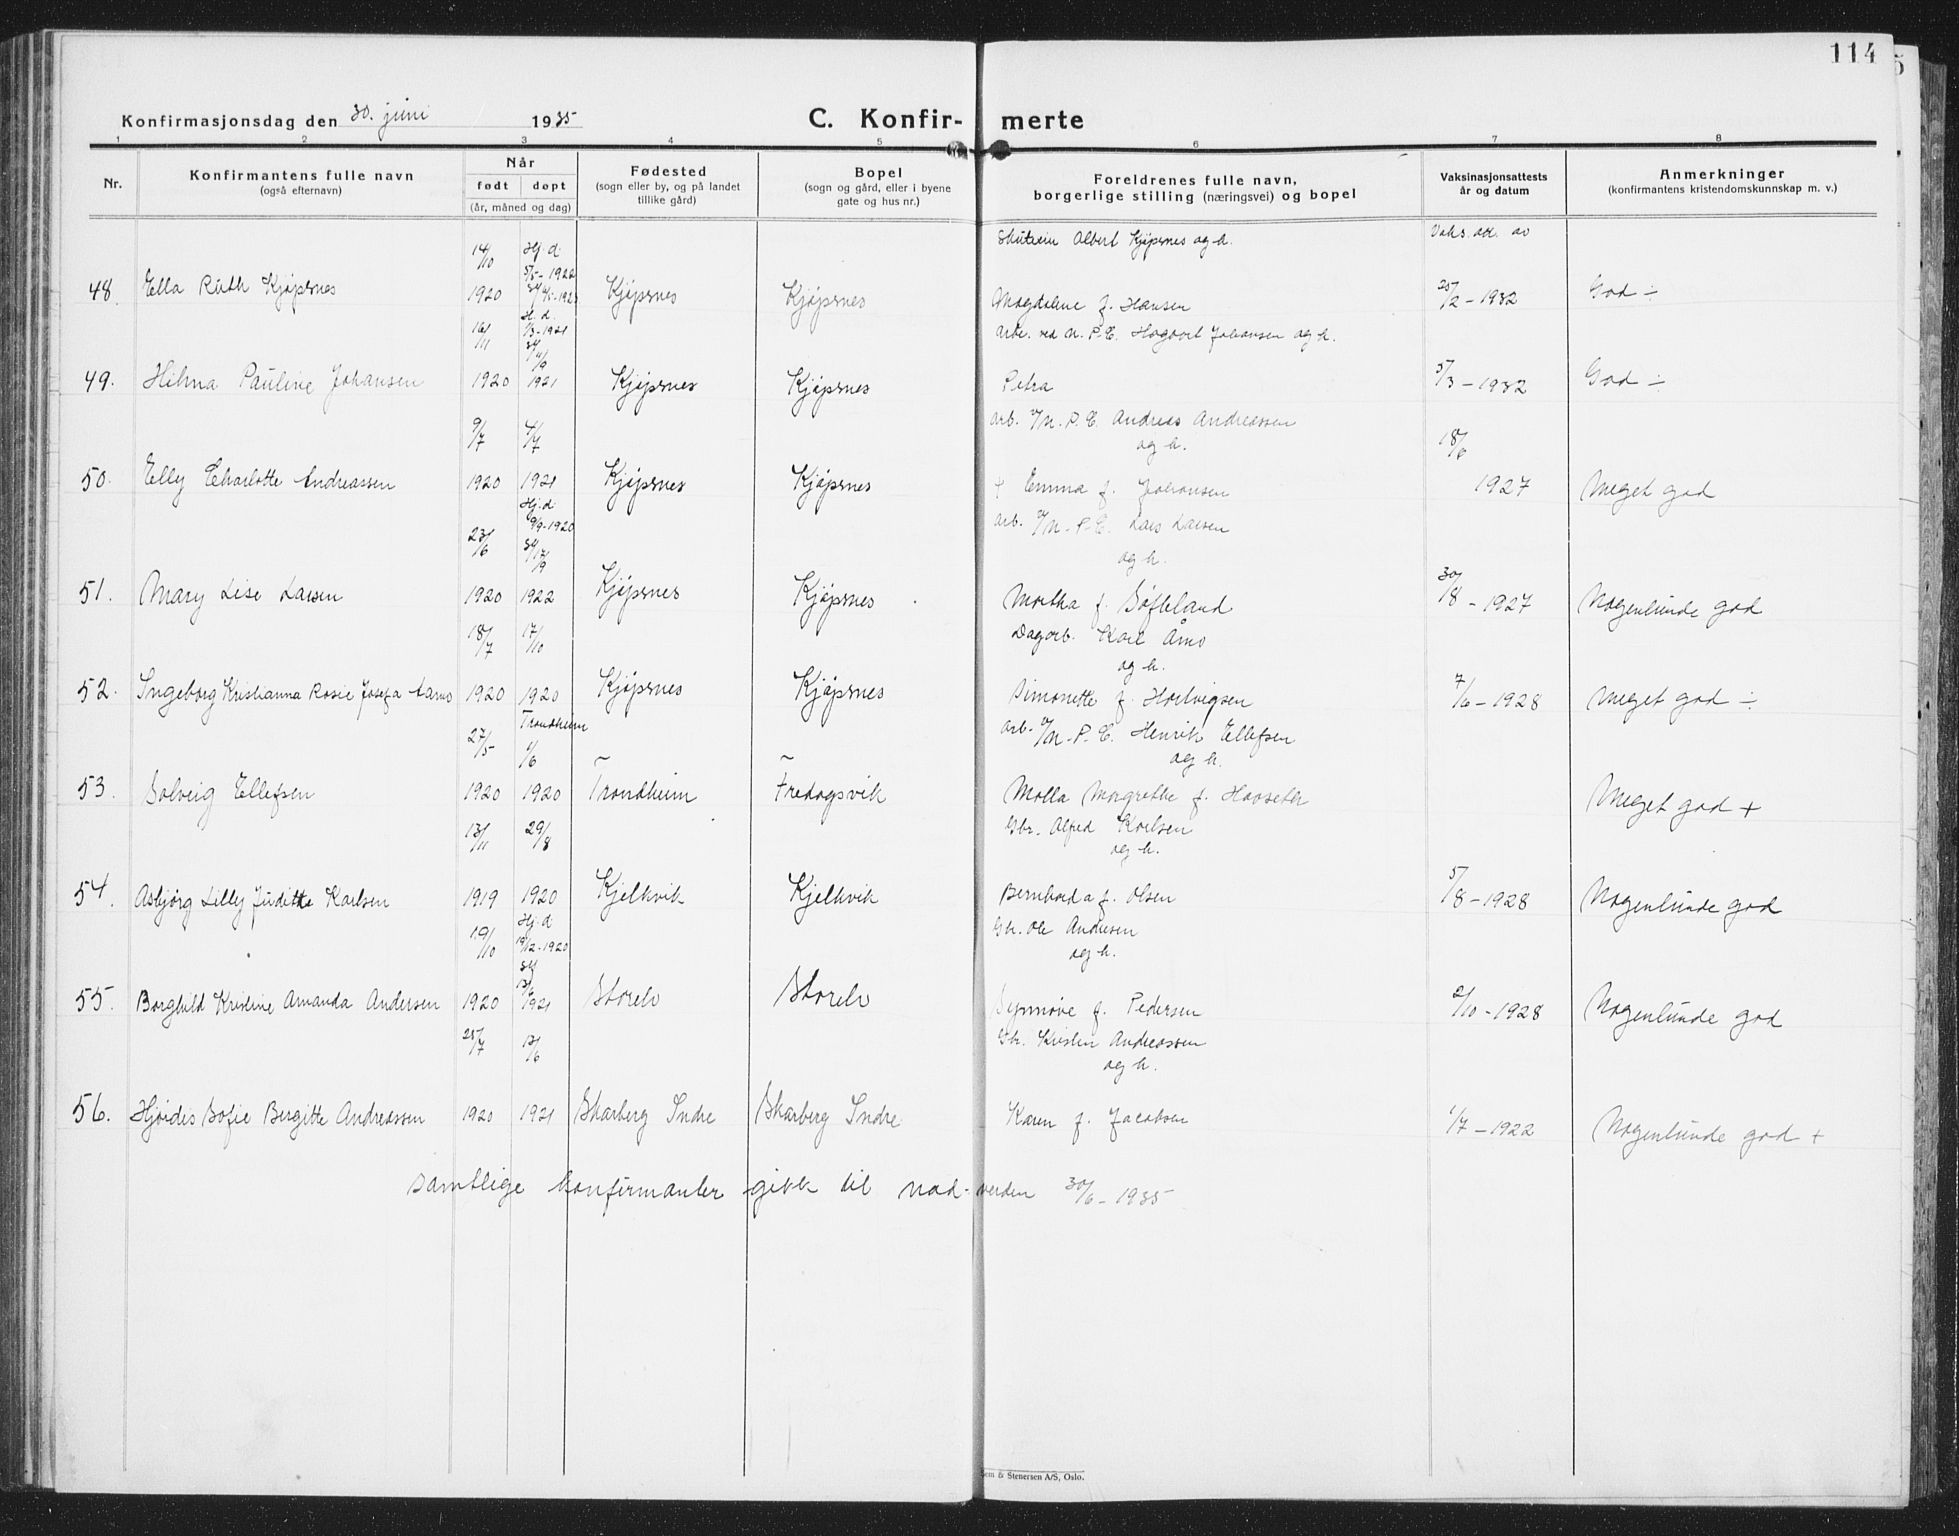 114
Konfirmasjonsdag den 30. juni 1935 C. Konfir- merte
1 2 3 4 5 6 7 8
Nr.
Konfirmantens fulle navn
(også efternavn)
Når
født døpt
(år, måned og dag)
Fødested
(sogn eller by, og på landet
tillike gård)
Bopel
(sogn og gård, eller i byene
gate og hus nr.)
Foreldrenes fulle navn,
borgerlige stilling (næringsvei) og bopel
Vaksinasjonsattests
år og datum
Anmerkninger
(konfirmantens kristendomskunnskap m. v.)
14/10 Hj. d. Albert Kjøpsnes og h. Vaks. att. av
5/5-1922
48. Ella Ruth Kjøpsnes 1920 Kjøpsnes Kjøpsnes Magdalene f. Hansen 25/2 - 1932 God ÷
16/11 H. d. 1/3-1921 arb. ved N. P. C. Hagbart Johansen og h.
49. Hilma Pauline Johansen 1920 1921 Kjøpsnes Kjøpsnes Petra 5/3 - 1932 God ÷
9/7 4/7 arb. v/N. P. C. Andreas Andreassen
og h. 18/6
50. Elly Charlotte Andreassen 1920 1921 Kjøpsnes Kjøpsnes + Emma f. Johansen 1927 Meget god
23/6 Hj. d. 9/9-1920 17/9 arb. v/N. P. C. Lars Larsen
og h.
51. Mary Lise Larsen 1920 1922 Kjøpsnes Kjøpsnes Martha f. Søfteland 30/8 - 1927 Nogenlunde god
18/7 17/10 Dagarb. Karl Åmo
og h.
52. Ingeborg Kristianna Rosie Josefa Aamo 1920 1920 Kjøpsnes Kjøpsnes Simonette f. Hartvigsen 7/6 - 1928 Meget god ÷
27/5 Trondheim 1/6 arb. v/N. P. C. Henrik Ellefsen
og h.
53. Solveig Ellefsen 1920 1920 Trondheim Fredagsvik Malla Margrethe f. Haaseth Meget god +
13/11 29/8 Gbr. Alfred Karlsen
og h.
54. Asbjørg Lilly Juditte Karlsen 1919 1920 Kjelkvik Kjelkvik Bernharda f. Olsen 5/8 - 1928 Nogenlunde god
19/10 Hj. d. 19/12-1920 Gbr. Ole Andersen
og h.
55. Borghild Kristine Amanda Andersen 1920 1921 Storelv Storelv Synnøve f. Pedersen 2/10 - 1928 Nogenlunde god
25/7 12/6 Gbr. Kristin Andreassen
og h.
56. Hjørdis Sofie Bergitte Andreassen 1920 1921 Skarberg Indre Skarberg Indre Karen f. Jacobsen 1/7 - 1922 Nogenlunde god +
Samtlige konfirmanter gikk til nad-verden 30/6 - 1935
Sem & Stenersen A/S, Oslo.